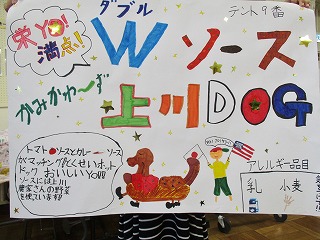 栄YO!
満点!
ダブル
テント9番
Wソース
かみかわ〜ず
上川DOG
トマトソースとカレーソース
がマッチングとくせいホット
ドック おいしいYO!!
ソースには上川
農家さんの野菜
を使っています!
アレルギー品目
乳 小麦